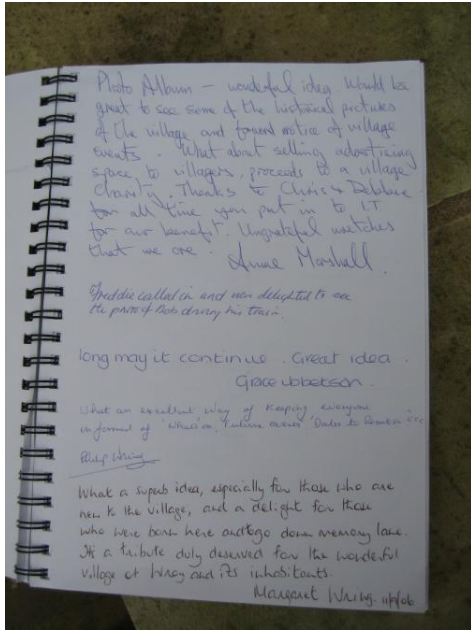 Photo Album – wonderful idea. Would be
great to see some of the historical pictures
of the village and forward notice of village
events. What about selling advertising
space, to villagers, proceeds to a village
Charity. Thanks to Chris & Debbie
for all time you put in to I.T
for our benefit. Ungrateful wretches
that we are. Anne Marshall.
Freddie called in and was delighted to see
the photo of Bob driving his train.
long may it continue. Great idea.
Grace Ibbetson.
What an excellent way of keeping everyone
informed of 'What's on, Future events 'Dates to
Philip
What a superb idea, especially for those who are
new to the village, and a delight for those
who were born here and to go down memory lane.
It's a tribute duly deserved for the wonderful
village of and its inhabitants.
Margaret